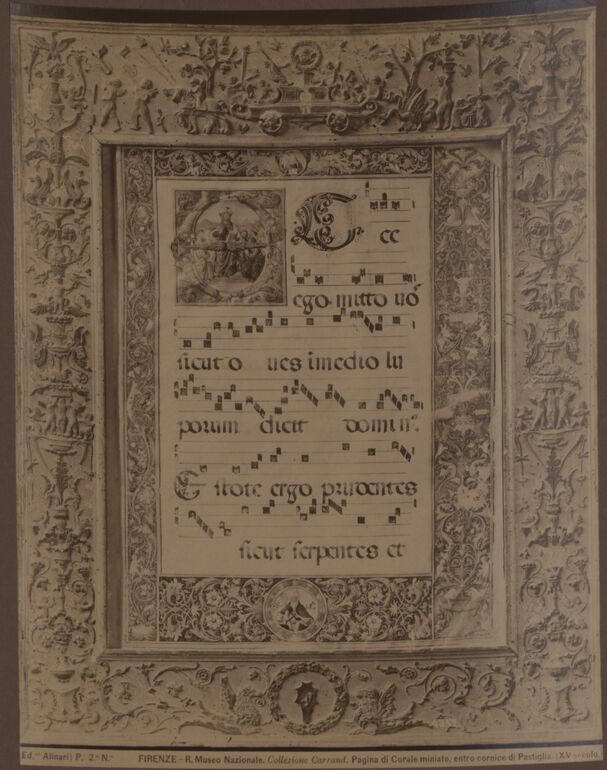 E cce
ego mitto uoˢ
sicut o ues imedio lu
porum dicit domin⁹.
Estote ergo prudentes
sicut serpentes et
Ed.ⁿᵉ Alinari) P.ᵉ 2.ª N.º FIRENZE - R. Museo Nazionale. Collezione Carrand. Pagina di Corale miniato, entro cornice di Pastiglia. (XV secolo.)